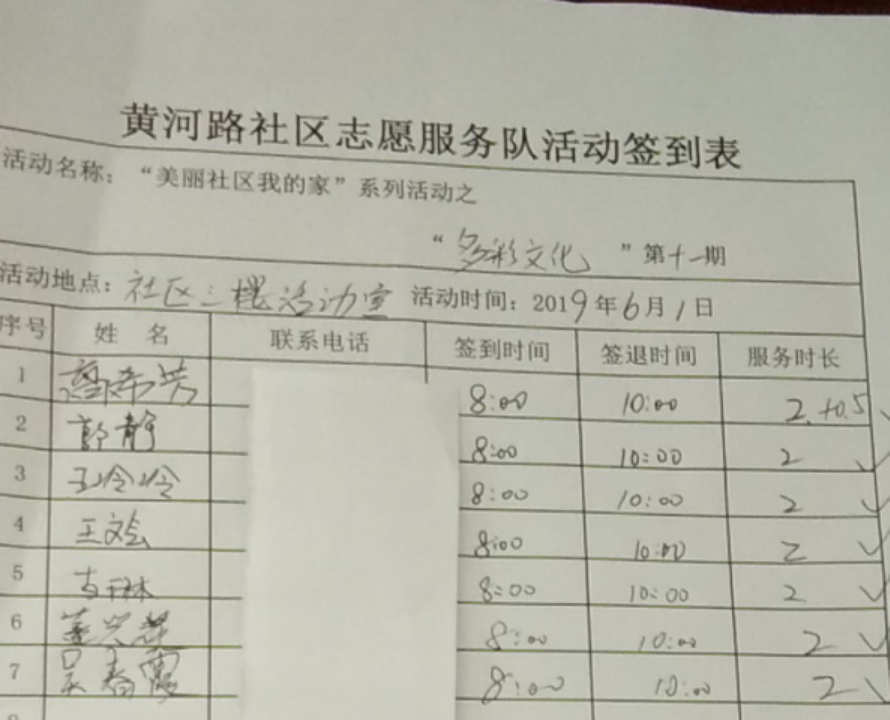 黄河路社区志愿服务队活动签到表
活动名称：“美丽社区我的家”系列活动之
“多彩文化”第十一期
活动地点：社区三楼活动室 活动时间：2019年6月1日
序号 姓名 联系电话 签到时间 签退时间 服务时长
1 希芳 8:00 10:00 2+0.5 ✓
2 郭静 8:00 10:00 2 ✓
3 王冷冷 8:00 10:00 2 ✓
4 王文会 8:00 10:00 2 ✓
5 8:00 10:00 2 ✓
6 董兴 8:00 10:00 2 ✓
7 吴春霞 8:00 10:00 2 ✓